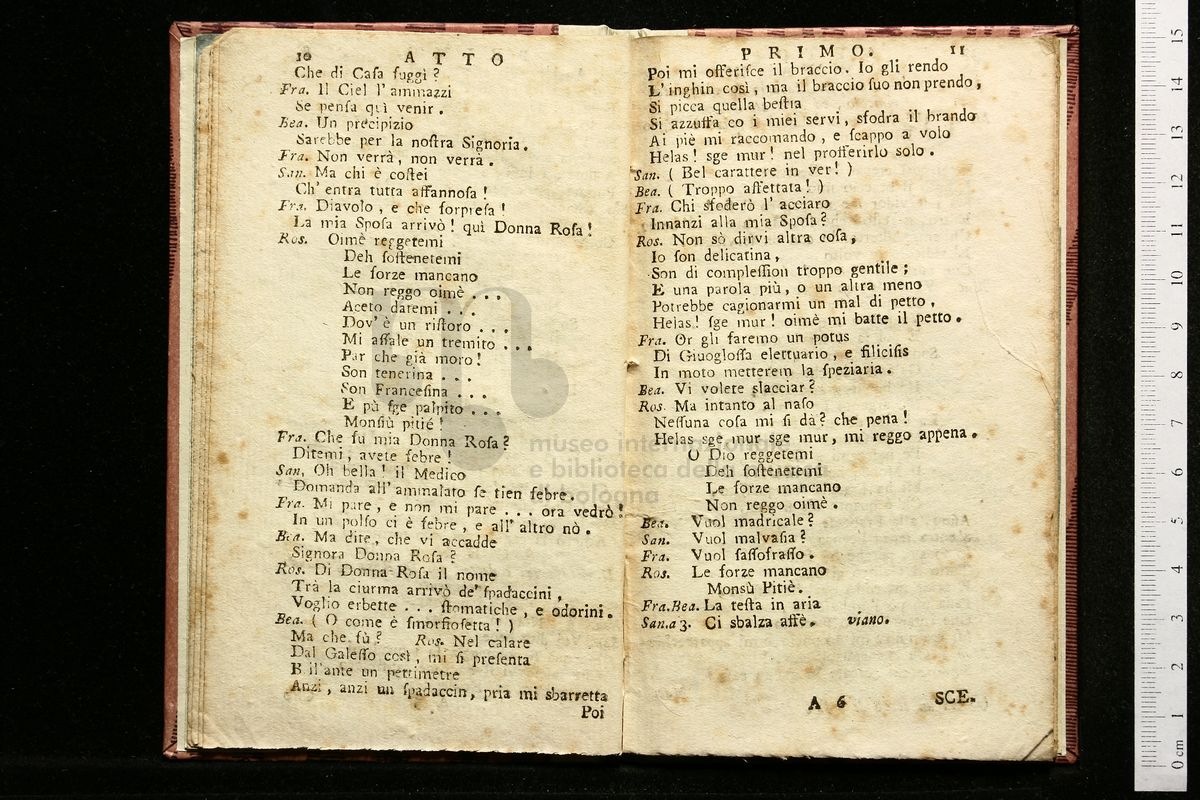 10 ATTO
Che di Caſa fuggì ?
Fra. Il Ciel l' ammazzi
Se penſa quì venir .
Bea. Un precipizio
Sarebbe per la noſtra Signoria .
Fra. Non verrà , non verrà .
San. Ma chi è coſtei
Ch' entra tutta affannoſa !
Fra. Diavolo , e che ſorpreſa !
La mia Spoſa arrivò ! quì Donna Roſa !
Ros. Oimè reggetemi
Deh ſoſtenetemi
Le forze mancano
Non reggo oimè . . .
Aceto datemi . . .
Dov' è un riſtoro . . .
Mi aſſale un tremito . . .
Par che già moro !
Son tenerina . . .
Son Franceſina . . .
E pù ſge palpito . . .
Monſiù pitié !
Fra. Che fu mia Donna Roſa ?
Ditemi , avete febre !
San, Oh bella ! il Medico
Domanda all' ammalato ſe tien febre .
Fra. Mi pare , e non mi pare . . . ora vedrò !
In un polſo ci è febre , e all' altro nò .
Bea. Ma dite , che vi accadde
Signora Donna Roſa ?
Ros. Di Donna Roſa il nome
Trà la ciurma arrivò de' ſpadaccini ,
Voglio erbette . . . ſtomatiche , e odorini .
Bea. ( O come è ſmorfioſetta ! )
Ma che fù ? Ros. Nel calare
Dal Galeſſo così , mi ſi preſenta
B ill'ante un pettimetre
Anzi , anzi un ſpadaccin , pria mi sbarretta
Poi
PRIMO. 11
Poi mi offeriſce il braccio . Io gli rendo
L' inghin così , ma il braccio ſuo non prendo ,
Si picca quella beſtia
Si azzuffa co i miei servi , sfodra il brando
Ai piè mi raccomando , e ſcappo a volo
Helas ! sge mur ! nel profferirlo solo .
San. ( Bel carattere in ver ! )
Bea. ( Troppo affettata ! )
Fra. Chi sfoderò l' acciaro
Innanzi alla mia Spoſa ?
Ros. Non sò dirvi altra coſa ,
Io ſon delicatina ,
Son di compleſſion troppo gentile ;
E una parola più , o un altra meno
Potrebbe cagionarmi un mal di petto ,
Helas ! ſge mur ! oimè mi batte il petto .
Fra. Or gli faremo un potus
Di Giuogloſſa elettuario , e filiciſis
In moto metterem la ſpeziaria .
Bea. Vi volete slacciar ?
Ros. Ma intanto al naſo
Neſſuna coſa mi ſi dà ? che pena !
Helas sge mur sge mur , mi reggo appena .
O Dio reggetemi
Deh ſoſtenetemi
Le forze mancano
Non reggo oimè .
Bea. Vuol madricale ?
San. Vuol malvaſia ?
Fra. Vuol ſaſſofraſſo .
Ros. Le forze mancano
Monsù Pitiè .
Fra.Bea. La teſta in aria
San.a 3. Ci sbalza affè . viano.
A 6 SCE.
museo internazionale
e biblioteca della
di bologna
0 cm 1 2 3 4 5 6 7 8 9 10 11 12 13 14 15